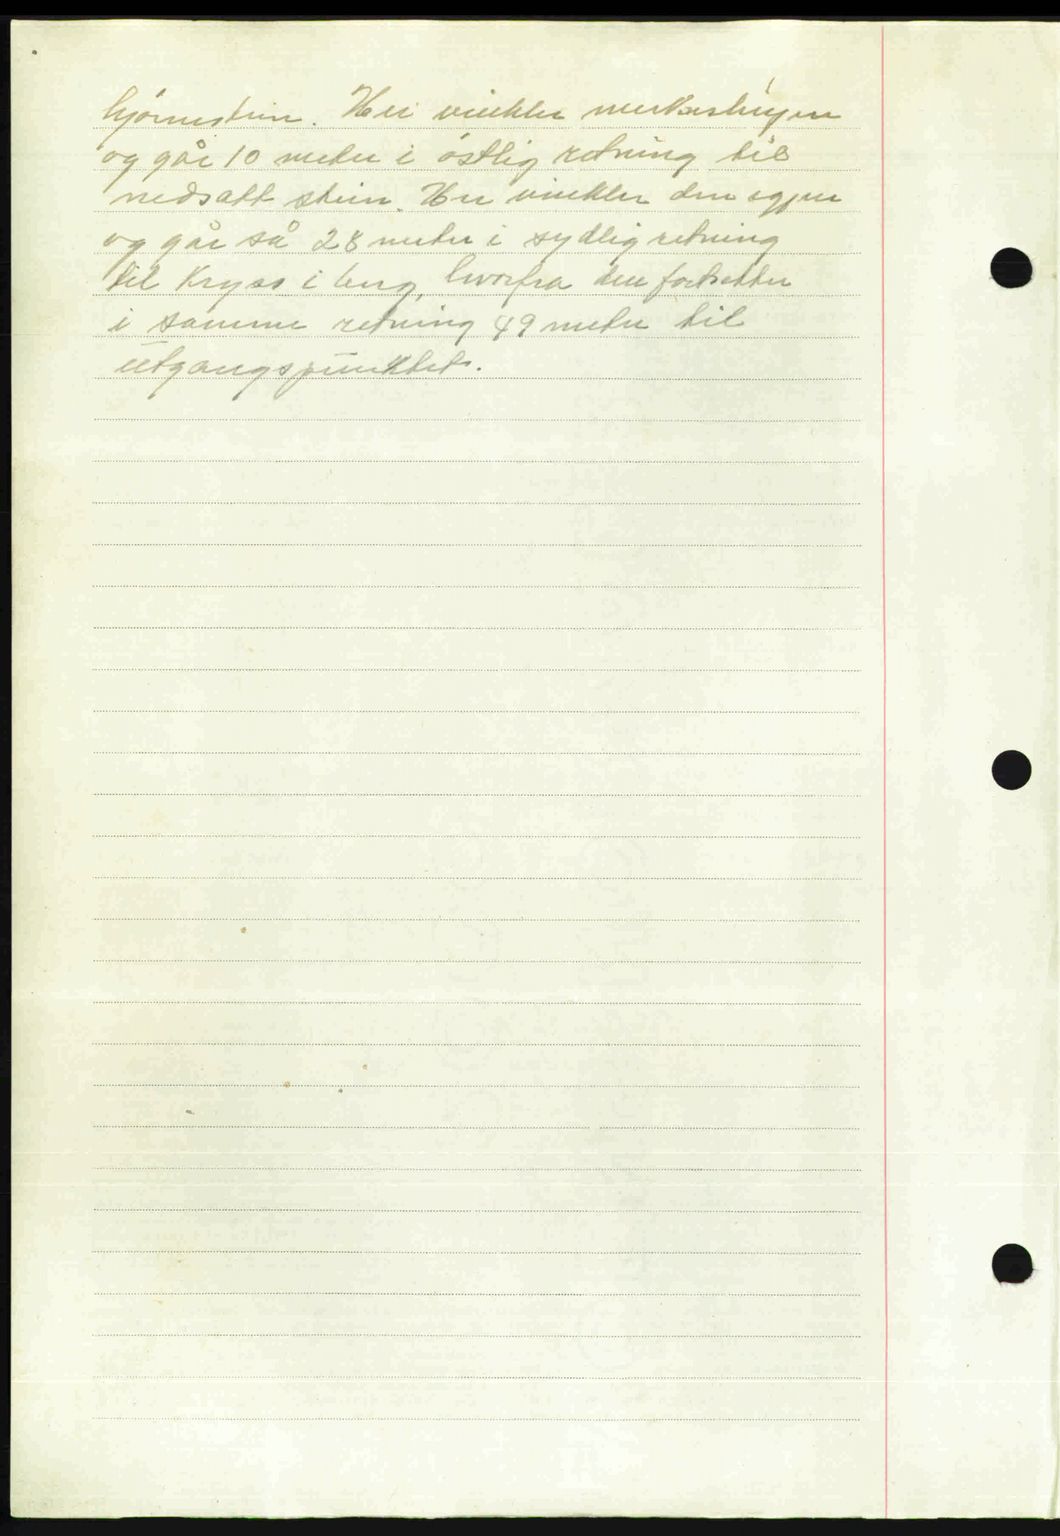 hjørnestein. Her vinkler merkeslinjen
og går 10 meter i østlig retning til
nedsatt stein. Her vinkler den igjen
og går så 28 meter i sydlig retning
til Kryss i berg, hvorfra den fortsetter
i samme retning 49 meter til
utgangspunktet.